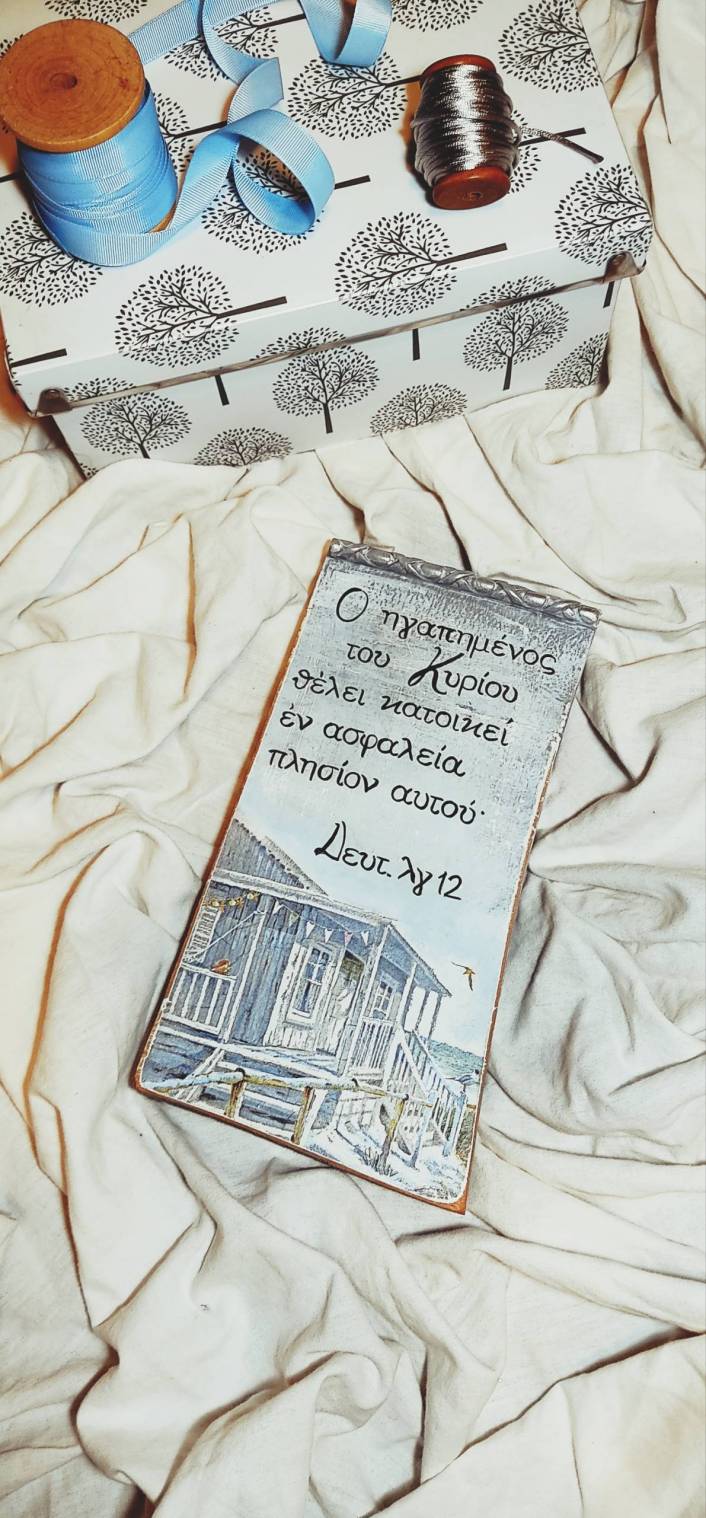 Ο ηγαπημένος
του Κυρίου
θέλει κατοικεί
έν ασφαλεία
πλησίον αυτού·
Δευτ. λγ 12